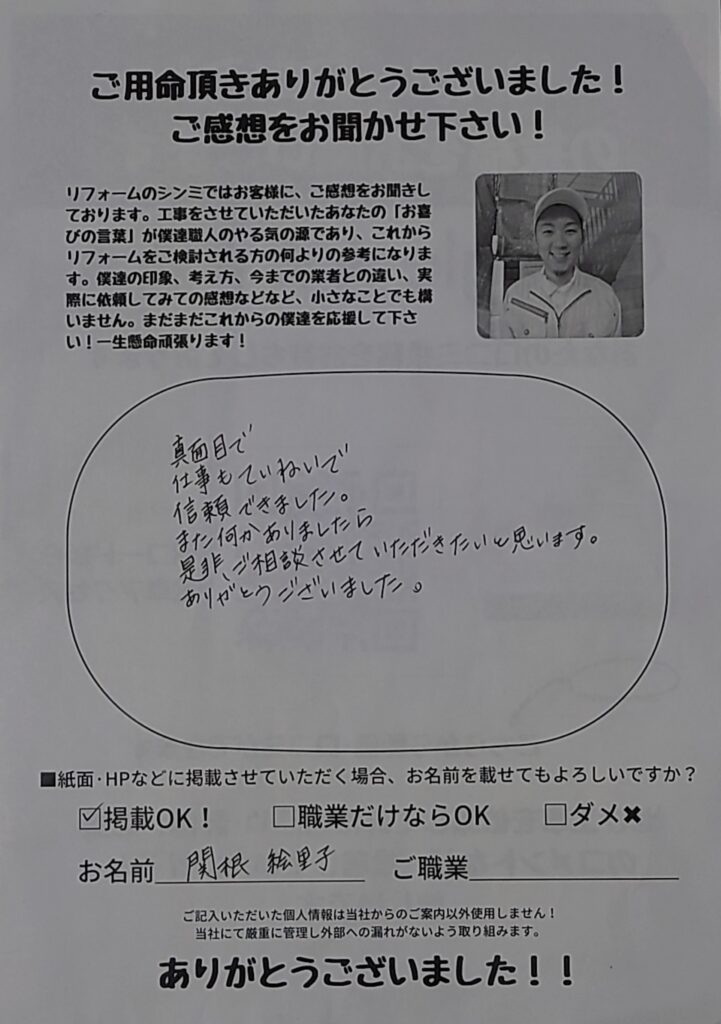 ご用命頂きありがとうございました！
ご感想をお聞かせ下さい！
リフォームのシンミではお客様に、ご感想をお聞きし
ております。工事をさせていただいたあなたの「お喜
びの言葉」が僕達職人のやる気の源であり、これから
リフォームをご検討される方の何よりの参考になりま
す。僕達の印象、考え方、今までの業者との違い、実
際に依頼してみての感想などなど、小さなことでも構
いません。まだまだこれからの僕達を応援して下さ
い！一生懸命頑張ります！
真面目で
仕事もていねいで
信頼できました。
また何かありましたら
是非、ご相談させていただきたいと思います。
ありがとうございました。
■紙面・HPなどに掲載させていただく場合、お名前を載せてもよろしいですか？
☑掲載OK！ □職業だけならOK □ダメ✖
お名前 関根 絵里子 ご職業
ご記入いただいた個人情報は当社からのご案内以外使用しません！
当社にて厳重に管理し外部への漏れがないよう取り組みます。
ありがとうございました！！